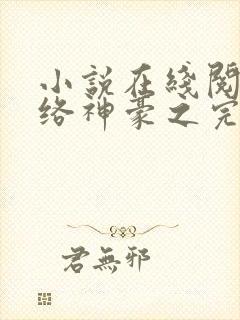 小說在綫閱
络神豪之完
君無邪